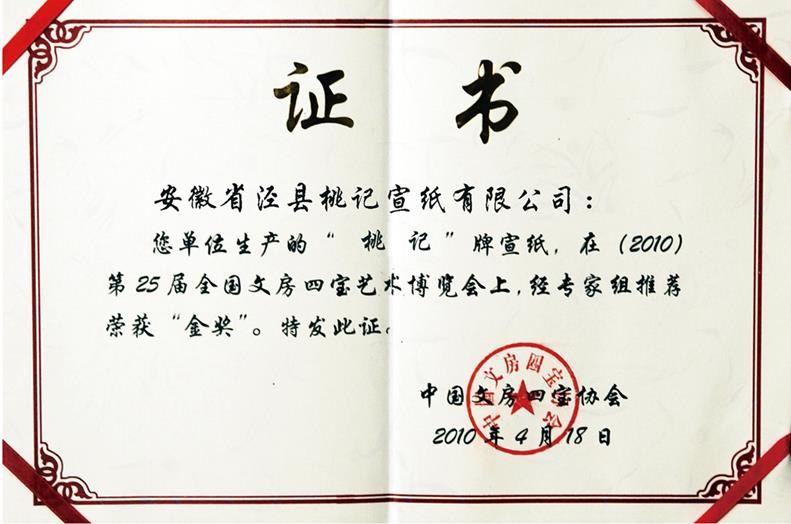 证 书
安徽省泾县桃记宣纸有限公司：
您单位生产的“桃 记”牌宣纸，在（2010）
第25届全国文房四宝艺术博览会上，经专家组推荐
荣获“金奖”。特发此证。
中国文房四宝协会
2010年4月18日
中国文房四宝协会